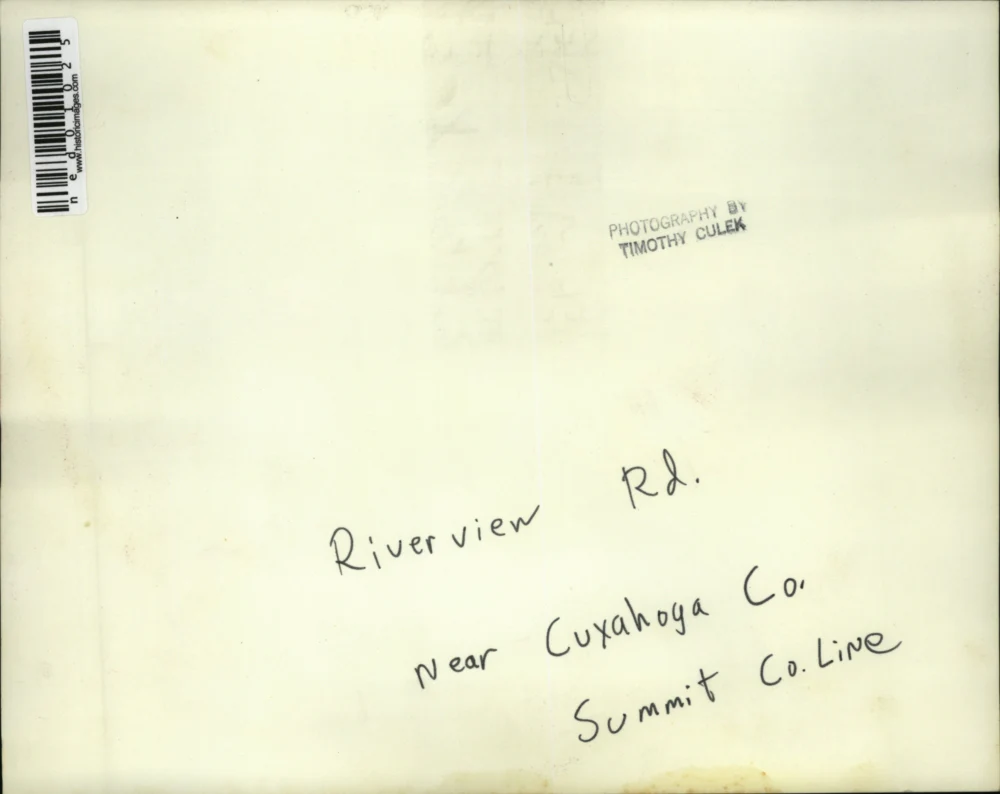 ned01025
www.historicimages.com
PHOTOGRAPHY BY
TIMOTHY CULEK
Riverview Rd.
near Cuxahoga Co.
Summit Co. Line